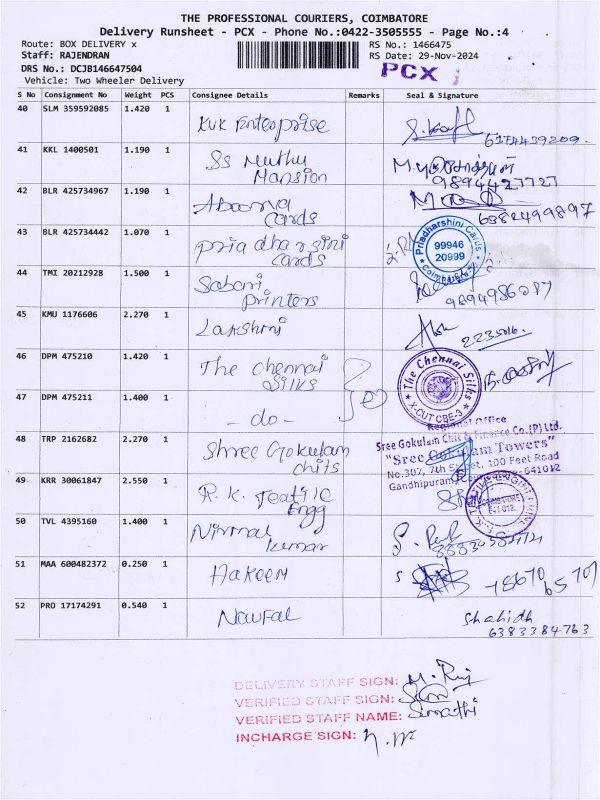 THE PROFESSIONAL COURIERS, COIMBATORE
Delivery Runsheet - PCX - Phone No.:0422-3505555 - Page No.:4
Route: BOX DELIVERY x
Staff: RAJENDRAN
DRS No.: DCJB146647504
Vehicle: Two Wheeler Delivery
RS No.: 1466475
RS Date: 29-Nov-2024
PCX
S No Consignment No Weight PCS Consignee Details Remarks Seal & Signature
40 SLM 359592085 1.420 1
KVK Enterprise
41 KKL 1400501 1.190 1
SS Muthu
Mansion
9894427727
42 BLR 425734967 1.190 1
Cards
6382499897
43 BLR 425734442 1.070 1
Priadharsini
Cards
Priadharshini Cards
99946
20999
Coimbatore
44 TMI 20212928 1.500 1
Sabari
Printers
45 KMU 1176606 2.270 1
Lakshmi
46 DPM 475210 1.420 1
The Chennai
Silks
The Chennai Silks
X-CUT CBE-3
47 DPM 475211 1.400 1
- do -
48 TRP 2162682 2.270 1
Shree Gokulam
Chits
Regional Office
Sree Gokulam Chit & Finance Co.(P) Ltd.
"Sree Gokulam Towers"
No.307, 7th Street, 100 Feet Road
Gandhipuram, 641012
49 KRR 30061847 2.550 1
R.K. Textile
Engg
50 TVL 4395160 1.400 1
Nirmal
Kumar
51 MAA 600482372 0.250 1
Hakeem
52 PRO 17174291 0.540 1
Naufal
Shahidh
6383384763
DELIVERY STAFF SIGN:
VERIFIED STAFF SIGN:
VERIFIED STAFF NAME: Sumathi
INCHARGE SIGN: